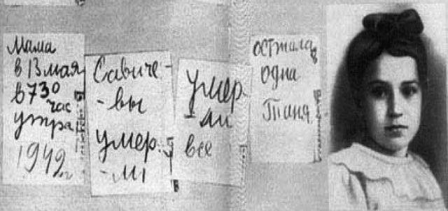 Мама
в 13 мая
в 7 30
час
утра
1942 г
Савиче-
-вы
умер
-ли
умер
-ли
все
осталась
одна
Таня